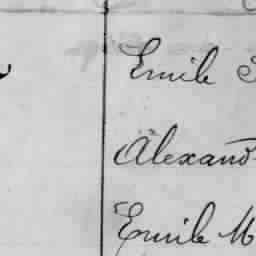 Emile
Alexand
Emile M